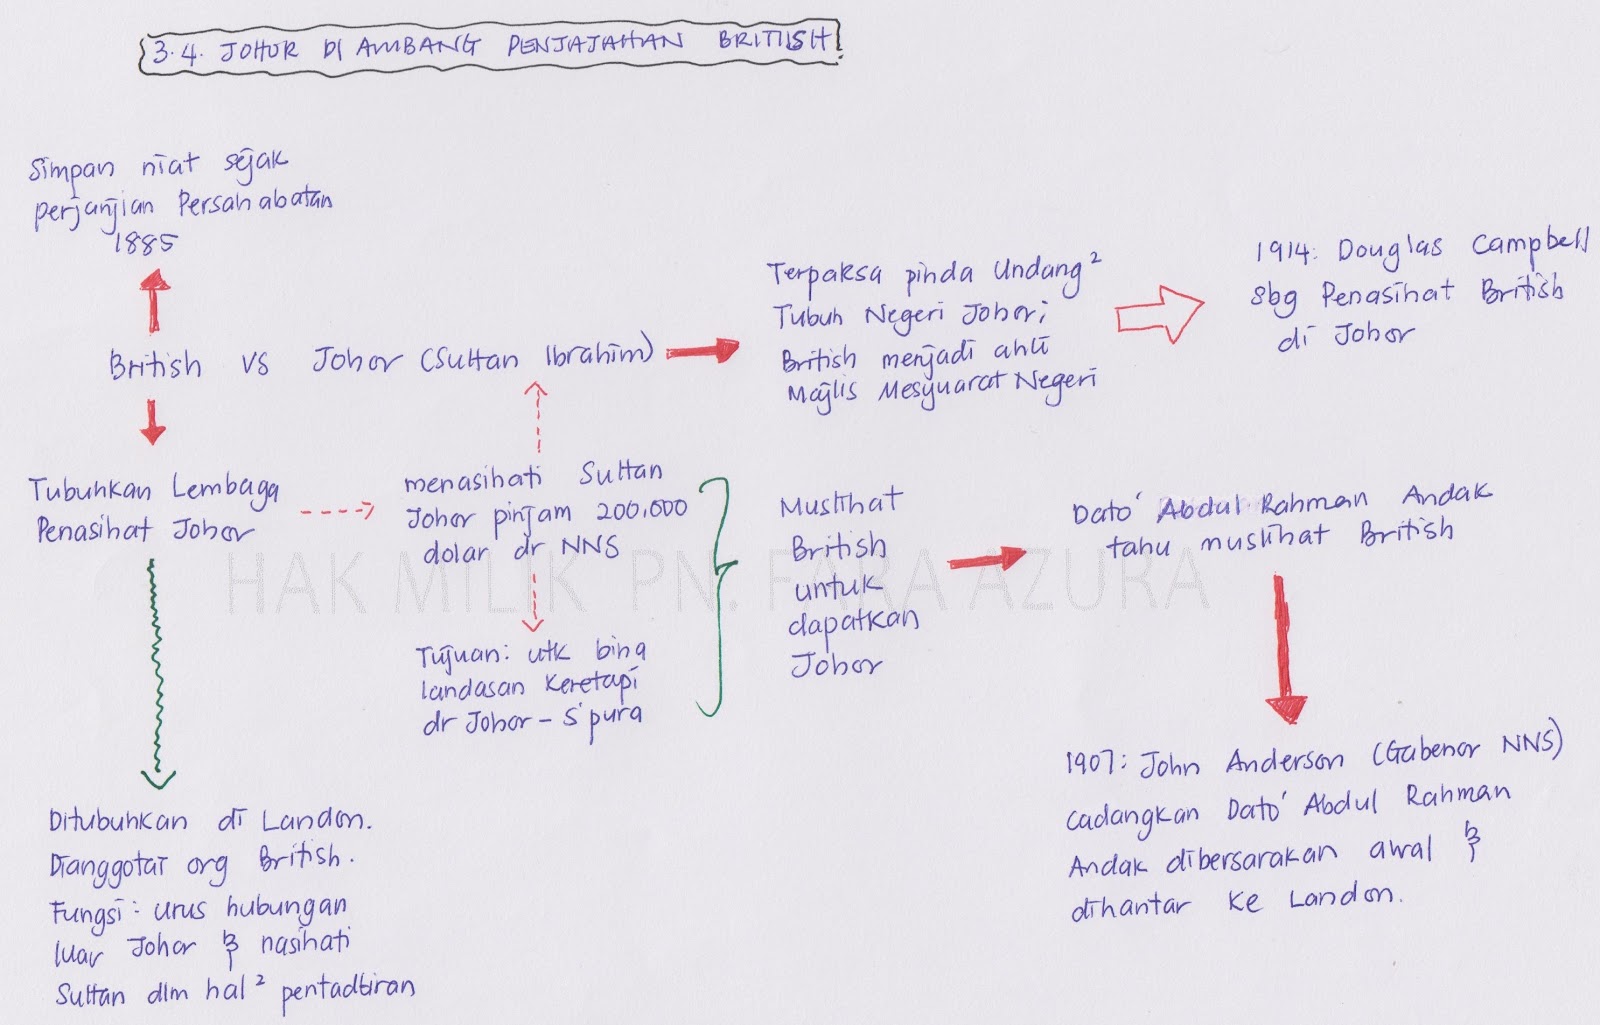 3.4. JOHOR DI AMBANG PENJAJAHAN BRITIISH
Simpan niat sejak
perjanjian Persahabatan
1885
British vs Johor (Sultan Ibrahim)
Terpaksa pinda Undang²
Tubuh Negeri Johor;
British menjadi ahli
Majlis Mesyuarat Negeri
1914: Douglas Campbell
sbg Penasihat British
di Johor
Tubuhkan Lembaga
Penasihat Johor
menasihati Sultan
Johor pinjam 200,000
dolar dr NNS
Tujuan: utk bina
landasan Keretapi
dr Johor - S'pura
Muslihat
British
untuk
dapatkan
Johor
Dato' Abdul Rahman Andak
tahu muslihat British
HAK MILIK PN. FARA AZURA
1907: John Anderson (Gabenor NNS)
cadangkan Dato' Abdul Rahman
Andak dibersarakan awal &
dihantar ke Landon.
Ditubuhkan di Landon.
Dianggotai org British.
Fungsi: urus hubungan
luar Johor & nasihati
Sultan dlm hal² pentadbiran